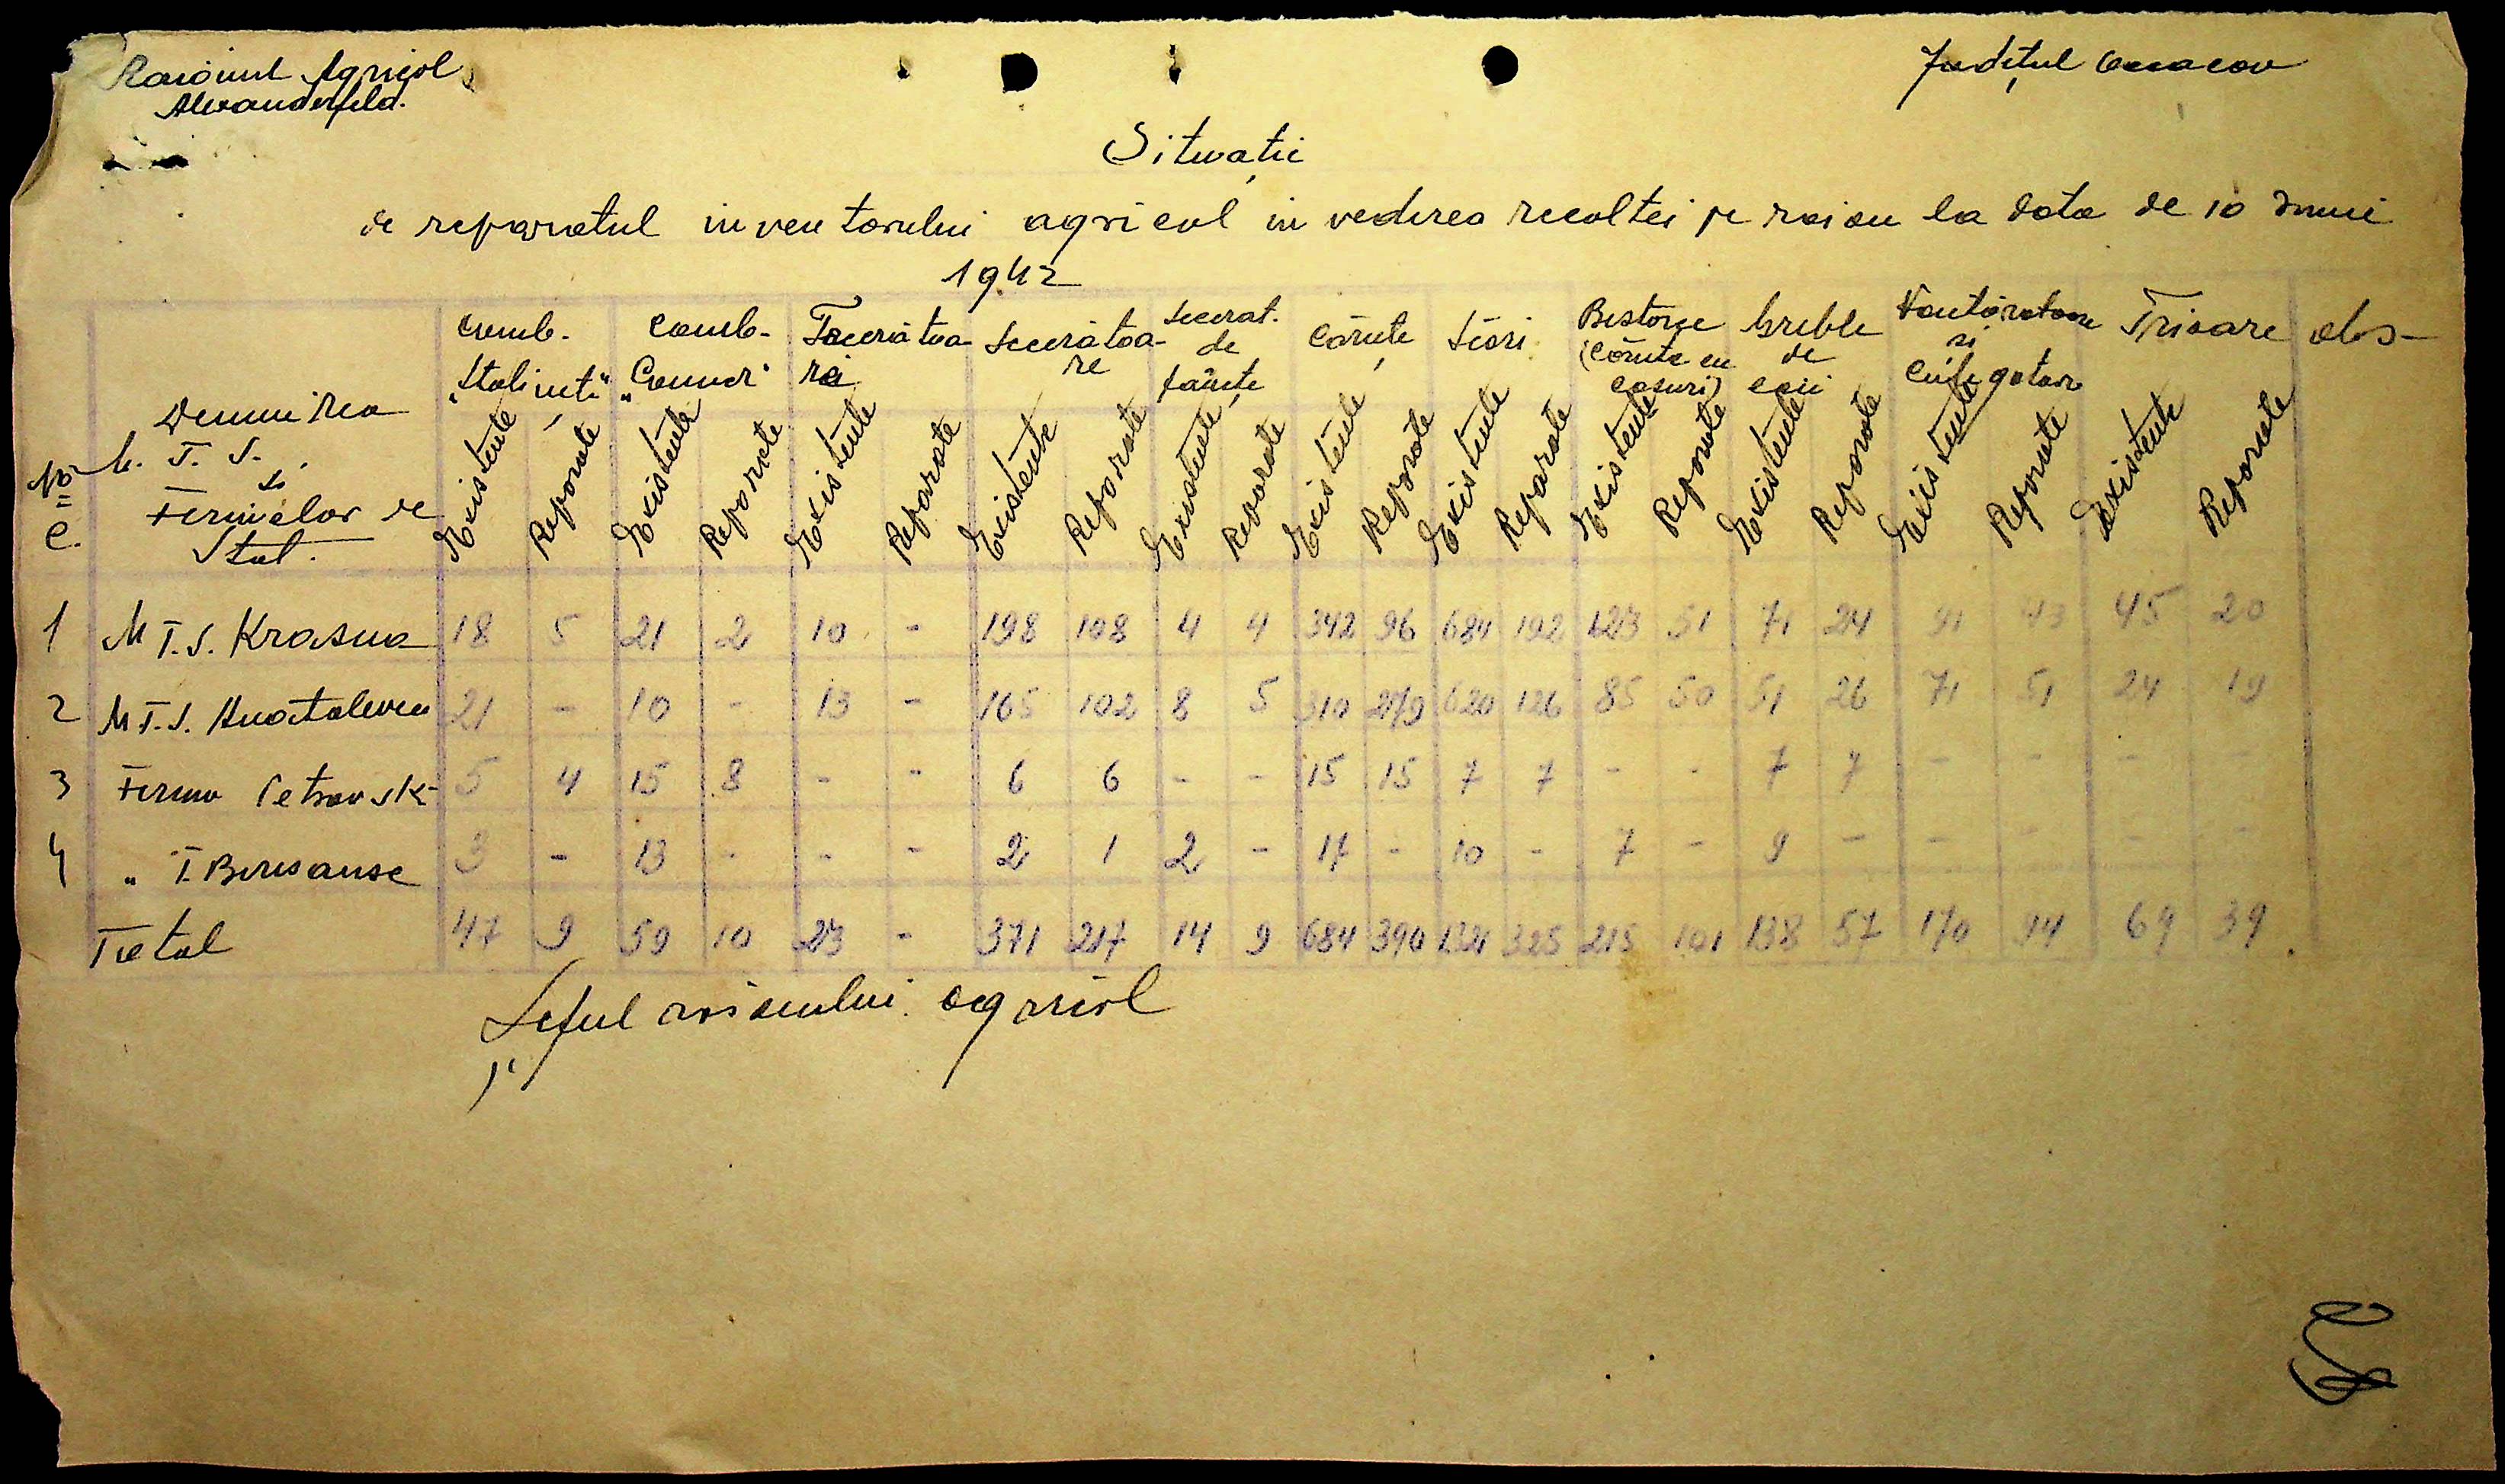 Raionul Agricol
Alexanderfeld.
Județul Oceacov
Situație
de reparatul inventarului agricol in vederea recoltei pe raion la data de 10 Iunie
1942
No C. Denumirea M. T. S. si Fermelor de Stat. Comb. „Stalineti" Comb. „Comunar" Secerătoare Secerat. de fânețe Cărute Seări Bestorge (Cărute cu cosuri) Greble de cai Vanturatoare si Trioare obs-
Existente Reparate Existente Reparate Existente Reparate Existente Reparate Existente Reparate Existente Reparate Existente Reparate Existente Reparate Existente Reparate Existente Reparate Existente Reparate
1 M T.S. Krasna 18 5 21 2 10 - 198 108 4 4 342 96 684 192 123 51 71 24 91 43 45 20
2 M T.S. Anatalevca 21 - 10 - 13 - 165 102 8 5 310 279 620 126 85 50 51 26 71 51 24 19
3 Ferma Petrovsk 5 4 15 8 - - 6 6 - - 15 15 7 7 - - 7 7 - - - -
4 „ T. Beresanse 3 - 13 - - - 2 1 2 - 17 - 10 - 7 - 9 - - - - -
Total 47 9 59 10 23 - 371 217 14 9 684 390 1321 325 215 101 138 57 170 94 69 39
Șeful raionului agricol